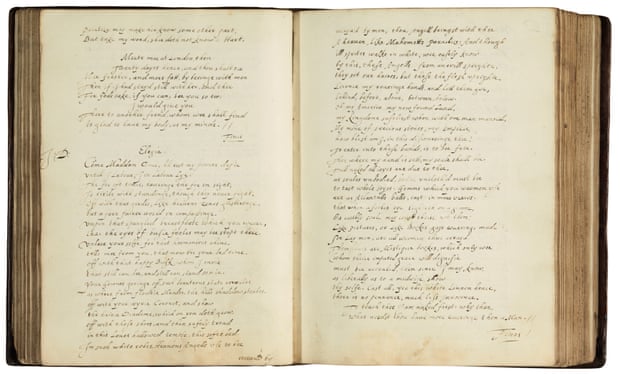 But take my word, she does not know a Hart.
Meete mee at London, then
Twenty dayes hence, and thou shalt see
Mee fresher, and more fat, by beeing with men
Then if I had stayd still with her, and thee
For Gods sake, if you can, bee you so too:
I would give you
There to another frend, whom wee shall find
As glad to have my body, as my minde.
Finis
Elegia.
Come Maddam Come, all rest my powers defie
Untill I Labour, I in Labour Lye:
The foe oft tymes having the foe in sight,
Is tir'de with standing, though they never fight.
Off with that girdle, like heavens zone
but a farr fairer world
Unpin that spangled brestplate which you weare,
That the eyes of busie fooles may bee stopt there.
Unlace your selfe, for that harmonious chime,
tells mee from you, that now tis your bed time.
off with that happy Buske, whom I envie
That still can bee, and still can stand so nie.
Your gownes going off, such beauteous state reveales
as when from flowry Meades, the hills shaddow steales.
off with your wyrie Coronet, and show
the hairie Diadme, which on you doth grow:
off with those shoes, and then safely tread
in this Loves hallowed temple, this softe bed.
In such white robes Heavens Angels us'd to bee
receav'd by
A heaven, like Mahomets Paradice, And though
Ill spirits walke in white, wee easily know
by this, these Angells, from an evill sprighte,
they set our haires, but these the flesh uprighte.
Licence my roaveing hands, and lett them goe,
behind, before, above, between, below.
Oh my America, my new found Land,
my Kingdome safeliest when with one man mannd.
My mine of precious stones, my Emperie,
how blest am I, in this
To enter into these bonds, is to bee free.
then where my hand is sett, my seale shall bee
Full nakednes all ioyes are due to thee,
as soules unbodied, bodies uncloth'd must bee
to tast whole ioyes. Gemms which you weomen use
are as Atlanta's balls, cast in mens viewes.
that when a fooles eye
Like pictures, or like Bookes gaye coverings made
For Lay men, are all weomen thus arayd.
are Mistique bookes, which only wee
whom their imputed grace will dignifie
must see reveal'd: then since I may know,
as liberally as to a midwife show
thy selfe: Cast all, yea this white Linnen hence,
there is no pennance, much lesse innocence.
To teach thee I am naked first: why then
What needst thou have more covering then a Man.
Finis